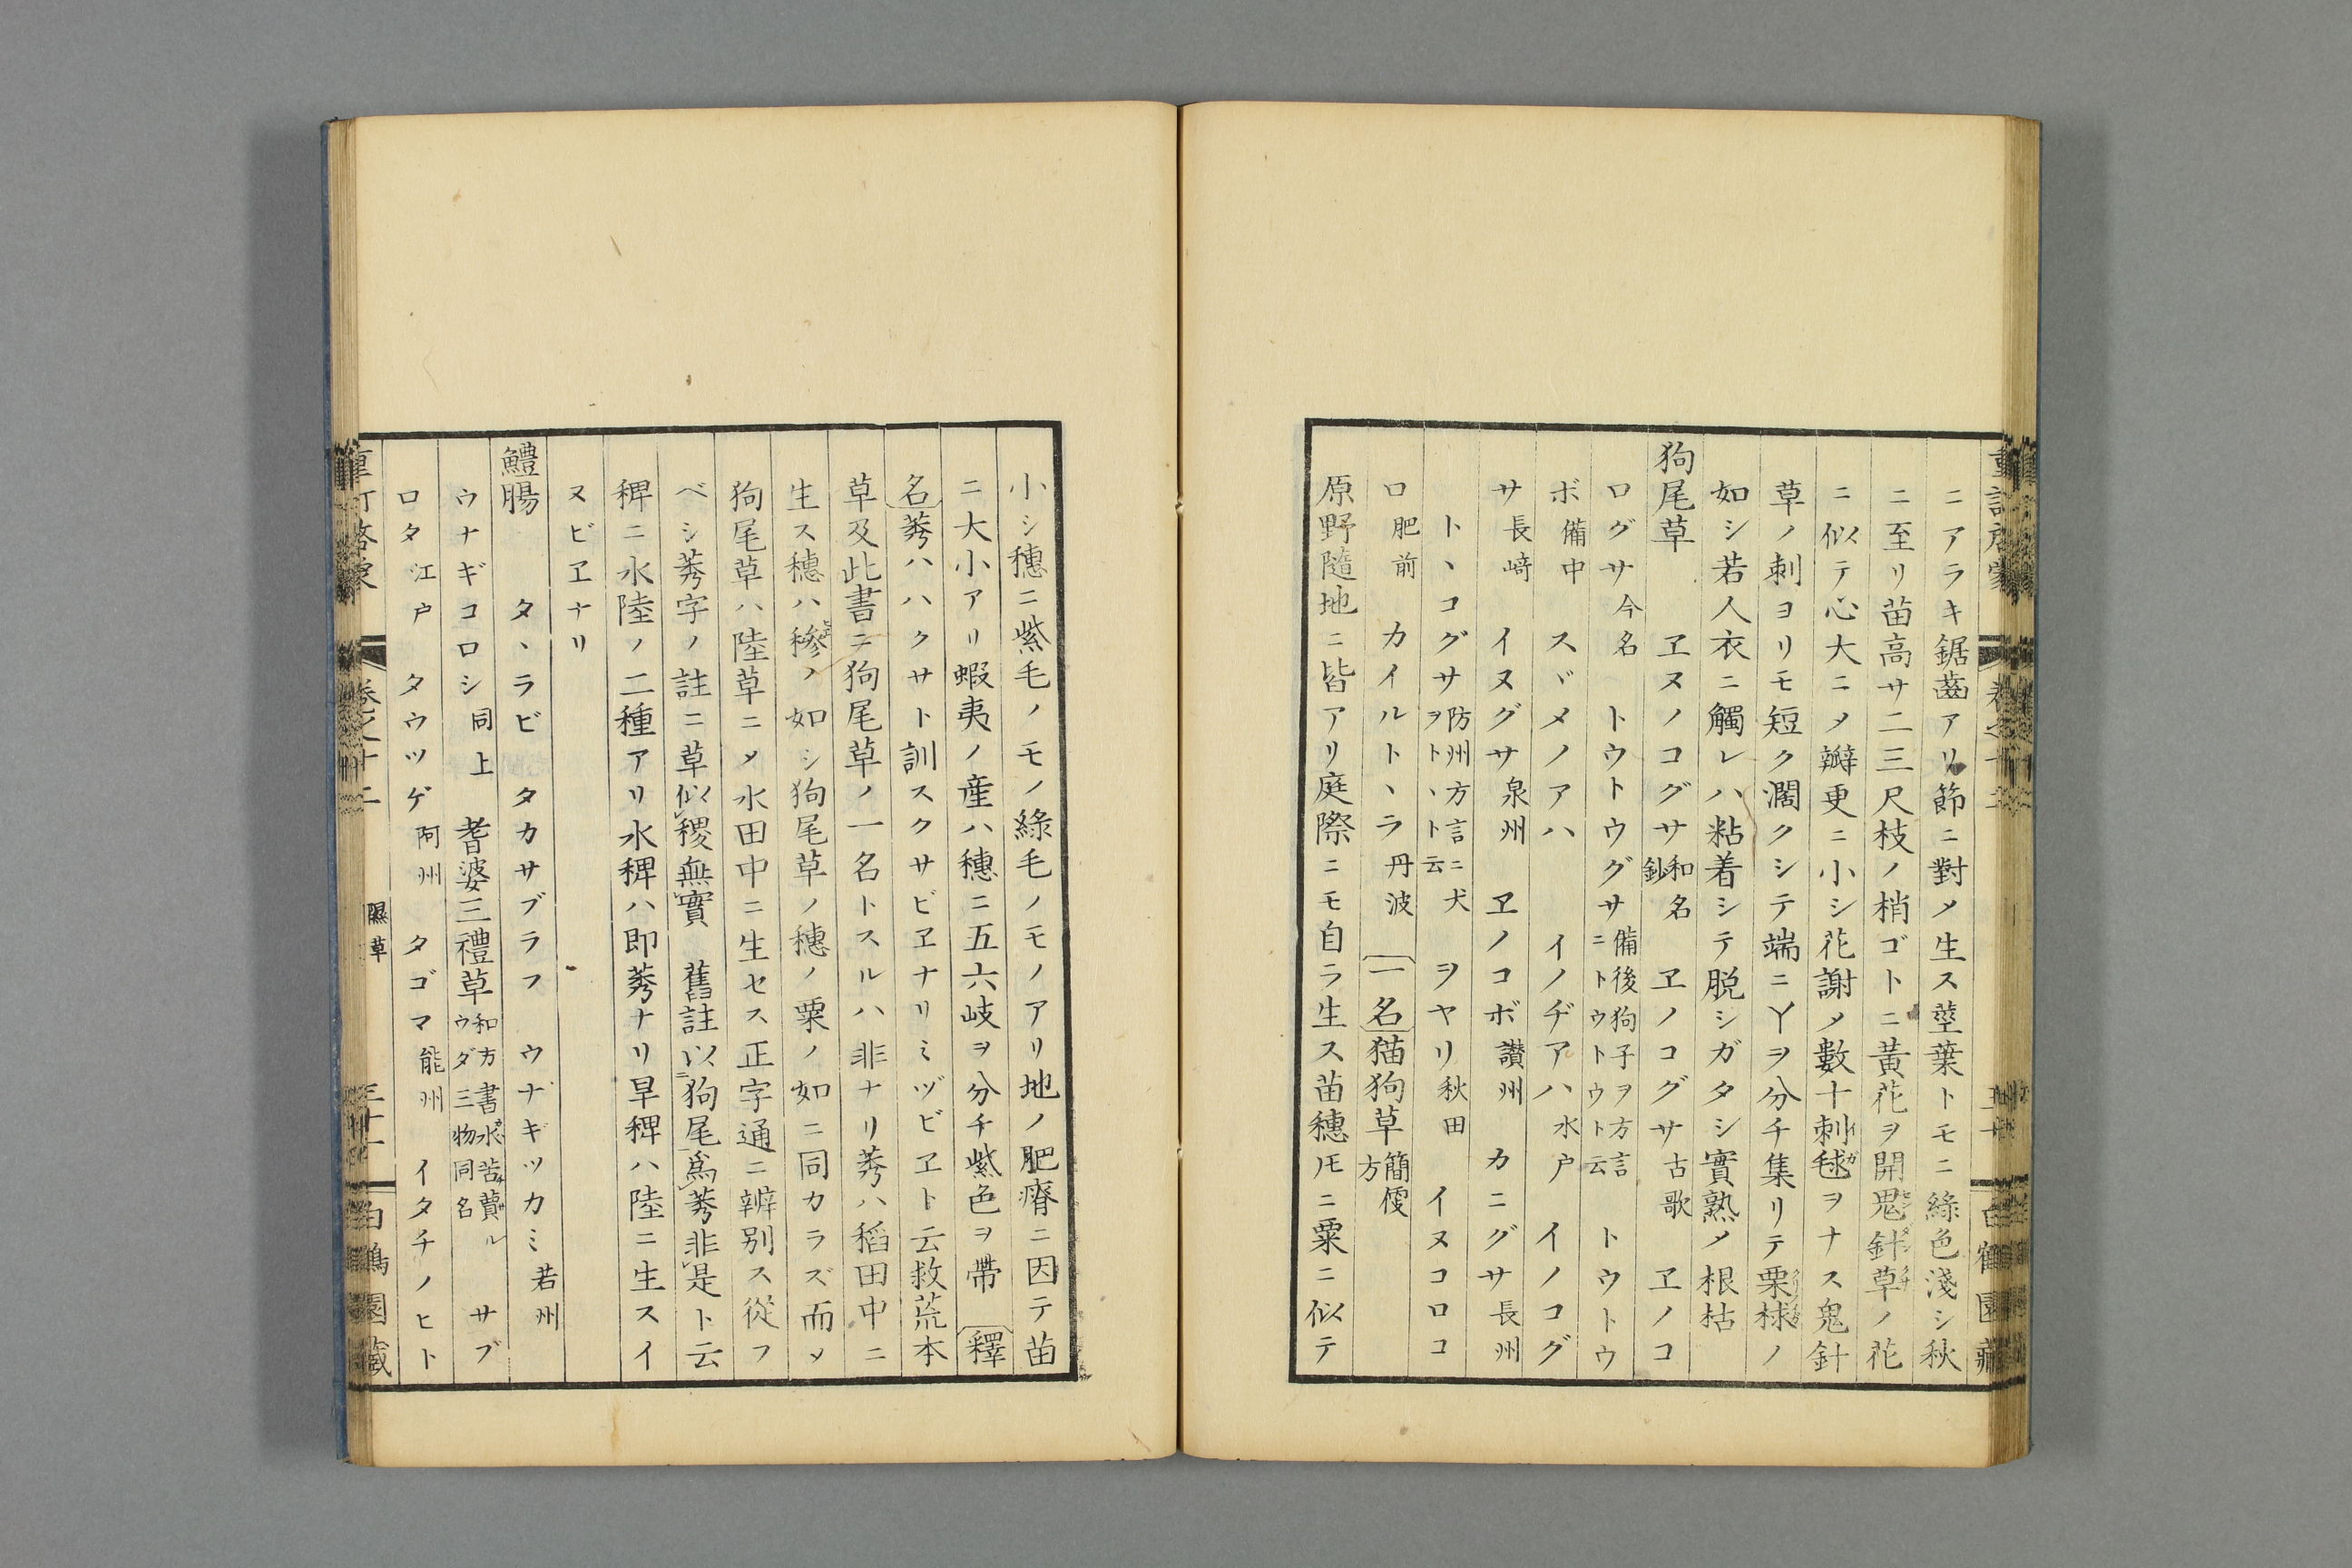 ニアラキ鋸齒アリ節ニ對乄生ス莖葉トモニ綠色淺シ秋
ニ至リ苗高サ二三尺枝ノ梢ゴトニ黃花ヲ開鬼針草ノ花
ニ似テ心大ニ乄瓣更ニ小シ花謝乄數十刺毬ヲナス鬼針
草ノ刺ヨリモ短ク濶クシテ端ニ丫ヲ分チ集リテ栗梂ノ
如シ若人衣ニ觸レハ粘着シテ脱シガタシ實熟乄根枯
狗尾草 ヱヌノコグサ和名鈔 ヱノコグサ古歌 ヱノコ
ログサ今名 トウトウグサ備後狗子ヲ方言ニトウトウト云 トウトウ
ボ備中 スヾメノアハ イノヂアハ水戸 イノコグ
サ長﨑 イヌグサ泉州 ヱノコボ讃州 カニグサ長州
トヽコグサ防州方言ニ犬ヲトヽト云 ヲヤリ秋田 イヌコロコ
ロ肥前 カイルトヽラ丹波 一名猫狗草簡便方
原野隨地ニ皆アリ庭際ニモ自ラ生ス苗穗𪜈ニ粟ニ似テ
小シ穗ニ紫毛ノモノ綠毛ノモノアリ地ノ肥瘠ニ因テ苗
ニ大小アリ蝦夷ノ産ハ穗ニ五六岐ヲ分チ紫色ヲ帶 釋
名莠ハハクサト訓スクサビヱナリミヅビヱト云救荒本
草及此書ニ狗尾草ノ一名トスルハ非ナリ莠ハ稻田中ニ
生ス穗ハ穇ノ如シ狗尾草ノ穗ノ粟ノ如ニ同カラズ而乄
狗尾草ハ陸草ニ乄水田中ニ生セス正字通ニ辨别ス從フ
ベシ莠字ノ註ニ草似稷無實 舊註以狗尾爲莠非是ト云
稗ニ水陸ノ二種アリ水稗ハ即莠ナリ旱稗ハ陸ニ生スイ
ヌビヱナリ
鱧腸 タヽラビ タカサブラフ ウナギツカミ若州
ウナギコロシ同上 耆婆三禮草和方書水苦蕒ルウダ三物同名 サブ
ロタ江戸 タウツゲ阿州 タゴマ能州 イタチノヒト
隰草